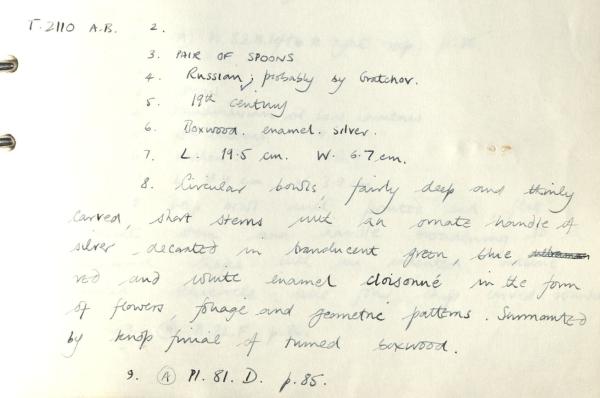 T. 2110 A.B. 2.
3. PAIR OF SPOONS
4. Russian; probably by Gratchov.
5. 19th century
6. Boxwood. enamel. silver.
7. L. 19.5 cm. W. 6.7 cm.
8. Circular bowls fairly deep and thinly
carved, short stems with an ornate handle of
silver decorated in translucent green, blue,
red and white enamel cloisonné in the form
of flowers, foliage and geometric patterns. Surmounted
by knop finial of turned boxwood.
9. A Pl. 81. D. p. 85.